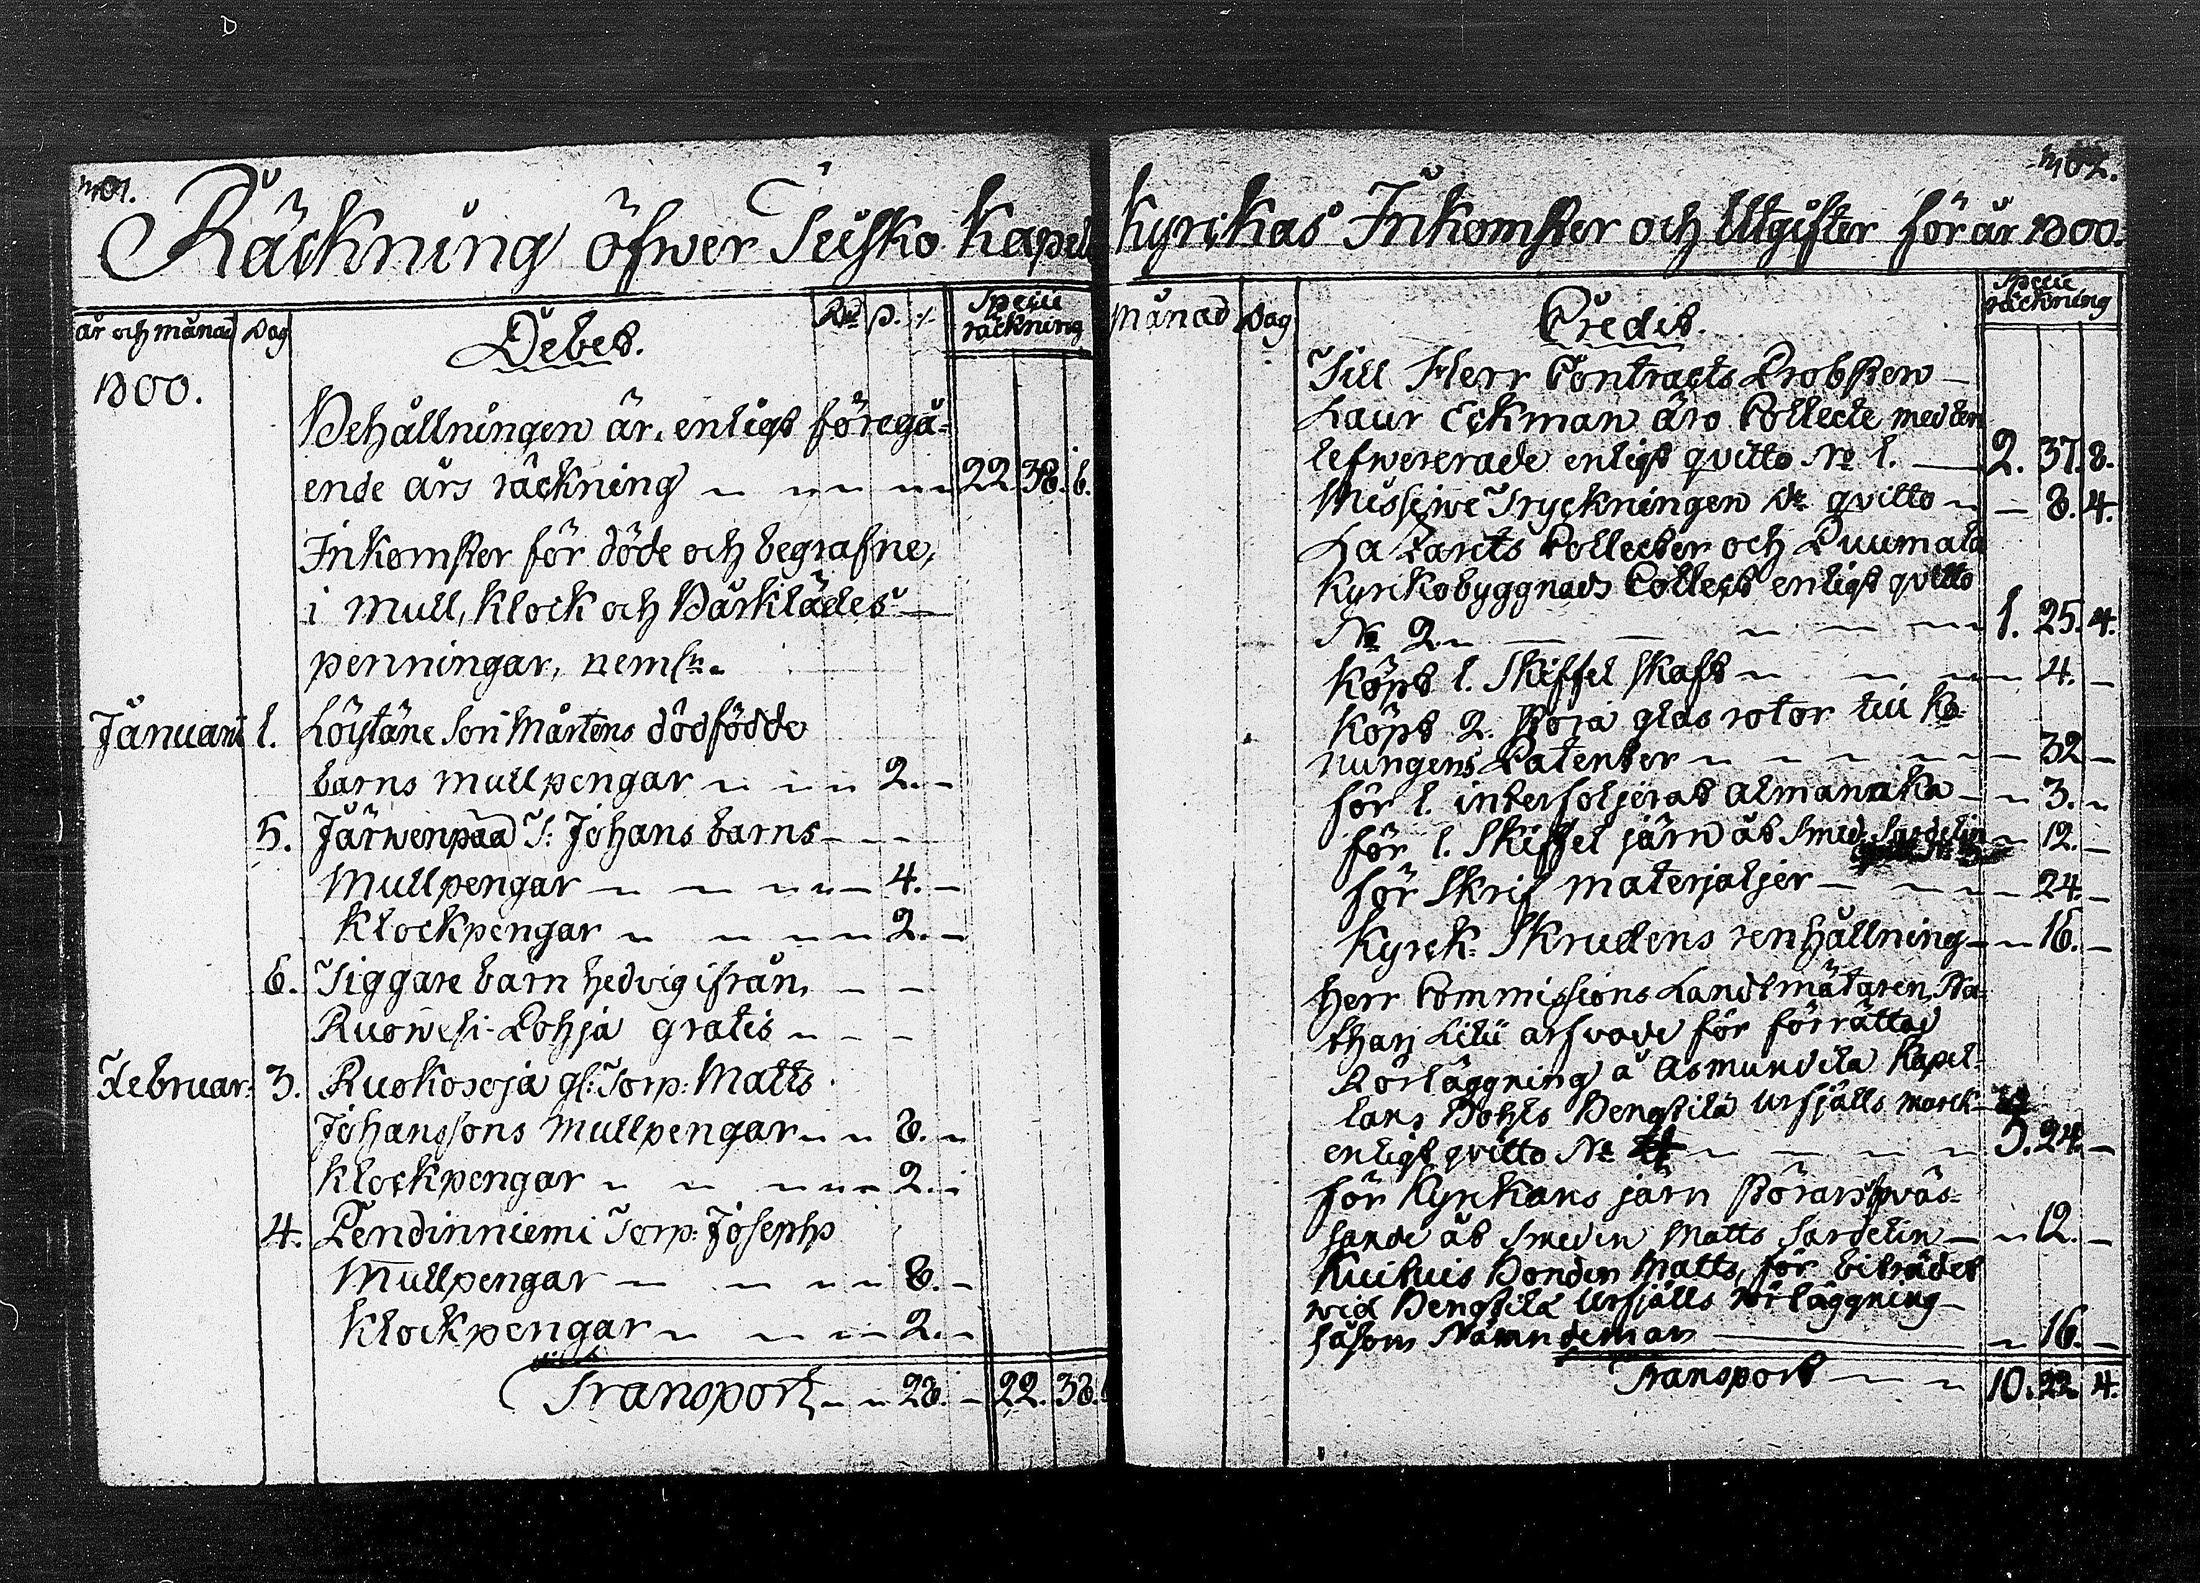 401.
Räckning öfwer Teisko Kapell
år och månad Dag Debet. Rd ß. rs Specie räckning
1800.
Behållningen är, enligt föregå-
ende års räckning 22. 38. 6.
Inkomster för döde och begrafne,
i Mull, Klock och Bårklädes-
penningar, nemln.
Januari 1. Löytäne Son Mårtens dödfödde
barns mullpengar 2. -
5. Järwenpää T: Johans barns
Mullpengar 4. -
Klockpengar 2. -
6. Tiggare barn Hedvig ifrån,
Ruowesi-Pohja gratis
Februar: 3. Ruokosoja gl: Torp: Matts
Johanssons Mullpengar 8.
Klockpengar 2.
4. Pendinniemi Torp: Josephs
Mullpengar 8. -
Klockpengar 2. -
Transport 28. - 22. 38.
402.
Kyrckas Inkomster och Utgifter för år 1800.
Månad Dag Credit. Specie räckning
Till Herr Contracts Probsten
Laur Eckman äro Collecte medlen
lefwererade enligt qvitto No 1. 2. 37. 8.
Missive Tryckningen do qvitto - 8. 4.
Lazarets Collecter och Puumala
Kyrckobyggnads Collect enligt qvitto
No 2. 1. 25. 4.
Köpt 1. Skiffel skaft 4. -
Köpt 2. glas till Ko-
nungens Patenter 32 -
för 1. interfoljerat almanaka 3.
för 1. Skiffel järn åt Smed Sardelin 12. -
för Skrif materjaljer 24. -
Kyrck: Skrudens renhållning 16. -
Herr Commissions Landtmätaren, Na-
than Lilii arfvode för förrättad
Rörläggning å Asmundila Kapel-
lans Bohls Bengtilä Ursjälls marck
enligt qvitto No 5. 24. -
för Kyrkans järn Störars hväs-
sande åt Smeden Matts Sardelin 12. -
Kuituis Bonden Matts, för biträdet
wid Bengtilä Ursjälls rörläggning
såsom Nämndeman 16. -
Transport 10. 22. 4.